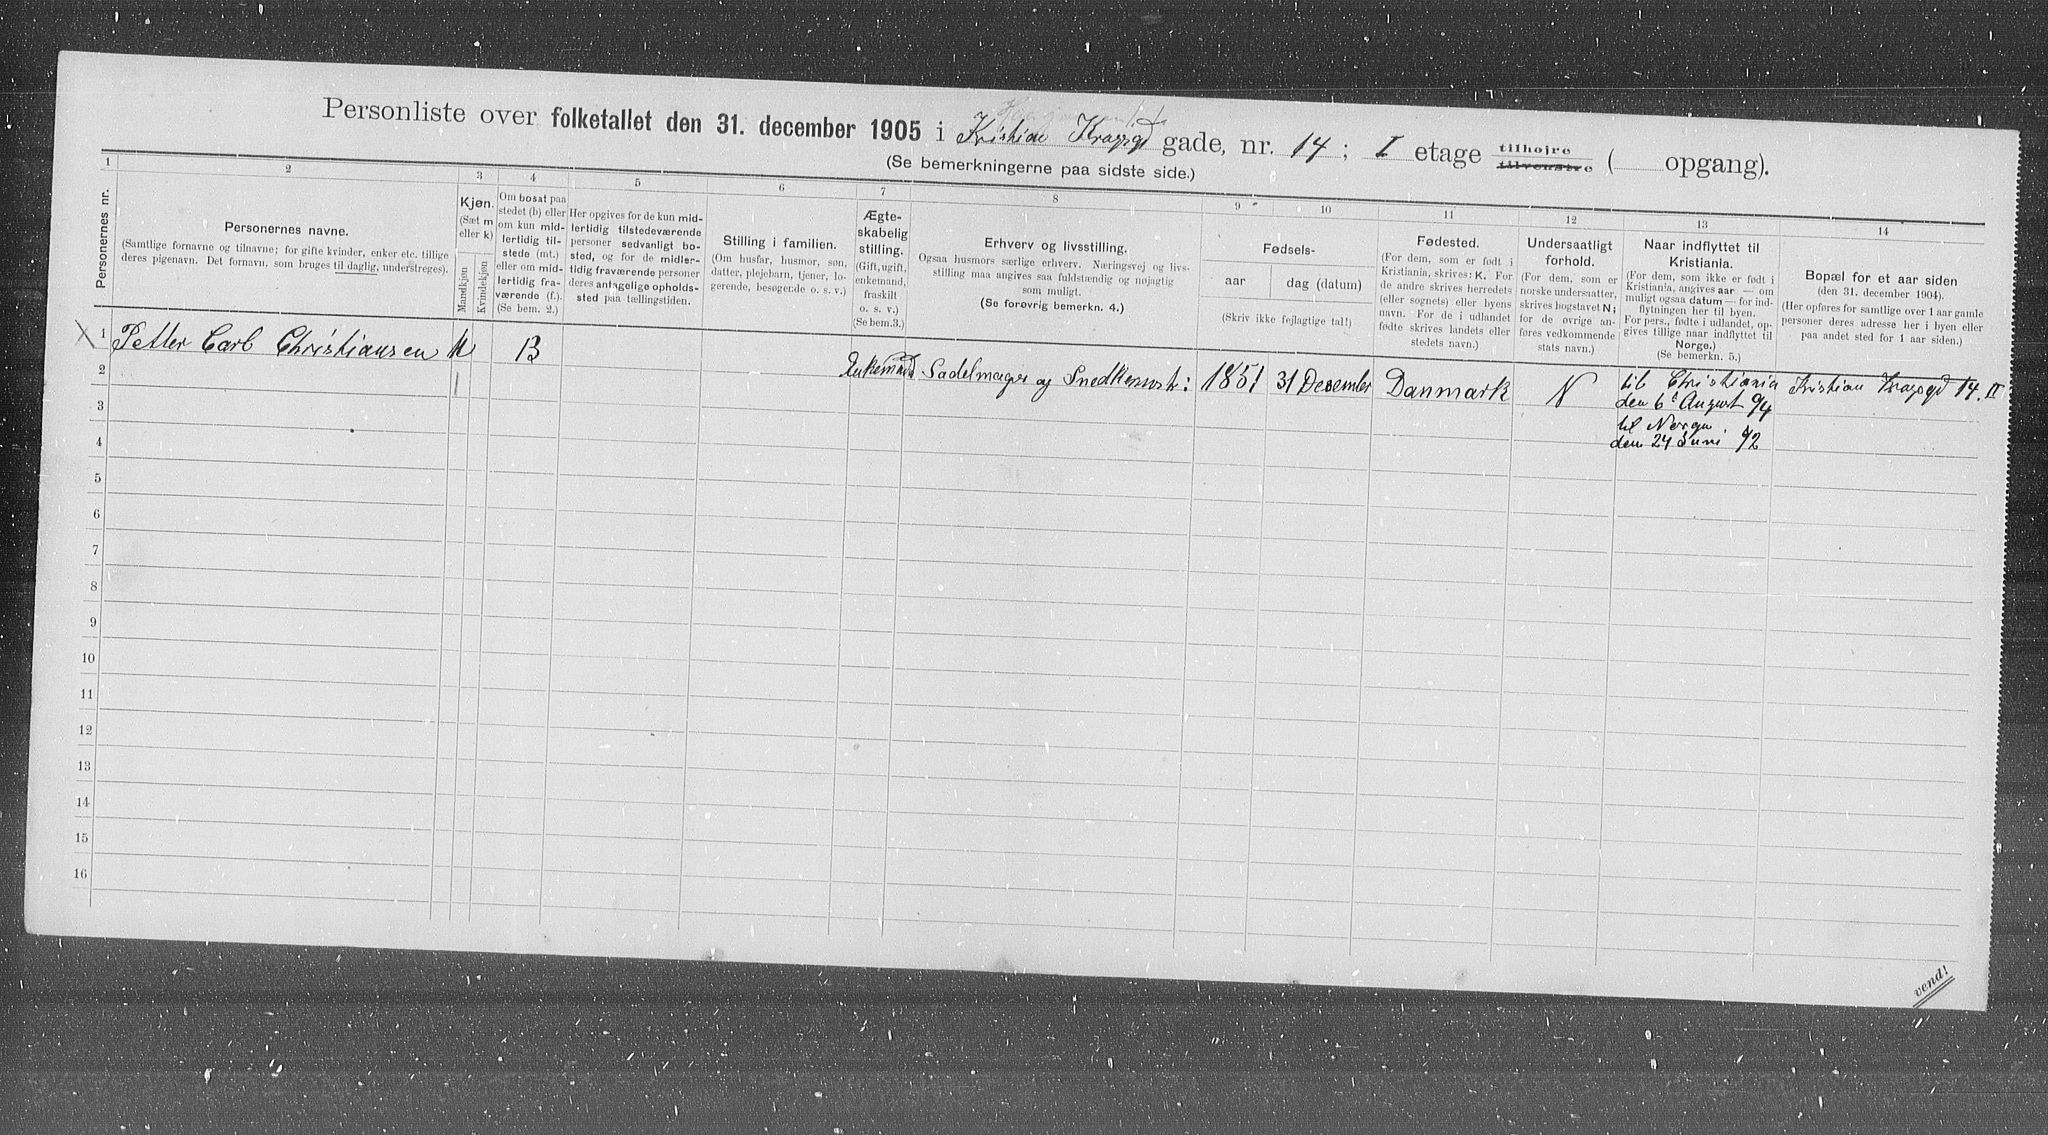 Personliste over folketallet den 31. december 1905 i Kristian Kraggs gade, nr. 14; I etage tilhøjre tilvenstre ( opgang).
(Se bemerkningerne paa sidste side.)
1 2 3 4 5 6 7 8 9 10 11 12 13 14
Personernes nr.
Personernes navne.
(Samtlige fornavne og tilnavne; for gifte kvinder, enker etc. tillige
deres pigenavn. Det fornavn, som bruges til daglig, understreges).
Kjøn.
(Sæt m
eller k)
Mandkjøn
Kvindekjøn
Om bosat paa
stedet (b) eller
om kun mid-
lertidig til-
stede (mt.)
eller om mid-
lertidig fra-
værende (f.).
(Se bem. 2.)
Her opgives for de kun mid-
lertidig tilstedeværende
personer sedvanligt bo-
sted, og for de midler-
tidig fraværende personer
deres antagelige opholds-
sted paa tællingstiden.
Stilling i familien.
(Om husfar, husmor, søn,
datter, plejebarn, tjener, lo-
gerende, besøgende o. s. v.)
Ægte-
skabelig
stilling.
(Gift, ugift,
enkemand,
fraskilt
o. s. v.)
(Se bem. 3.)
Erhverv og livsstilling.
Ogsaa husmors særlige erhverv. Næringsvej og livs-
stilling maa angives saa fuldstændig og nøjagtig
som muligt.
(Se forøvrig bemerkn. 4.)
Fødsels-
aar
dag (datum)
(Skriv ikke fejlagtige tal!)
Fødested.
(For dem, som er født i
Kristiania, skrives: K. For
de andre skrives herredets
(eller sognets) eller byens
navn. For de i udlandet
fødte skrives landets eller
stedets navn.)
Undersaatligt
forhold.
(For dem, som er
norske undersaatter,
skrives bogstavet N;
for de øvrige an-
føres vedkommende
stats navn.)
Naar indflyttet til
Kristiania.
(For dem, som ikke er født i
Kristiania, angives aar — om
muligt ogsaa datum — for ind-
flytningen her til byen.
For pers., fødte i udlandet, op-
gives tillige naar indflyttet til
Norge.)
(Se bemerkn. 5.)
Bopæl for et aar siden
(den 31. december 1904).
(Her opføres for samtlige over 1 aar gamle
personer deres adresse her i byen eller
paa andet sted for 1 aar siden.)
X 1 Petter Carl Christiansen M B
Enkemand Sadelmager og 1851 31 December Danmark N til Christiania Kristian Kraggsgd 14. II
den 6t August 94
til Norge
den 24 Juni 92
2
3
4
5
6
7
8
9
10
11
12
13
14
15
16
vend!